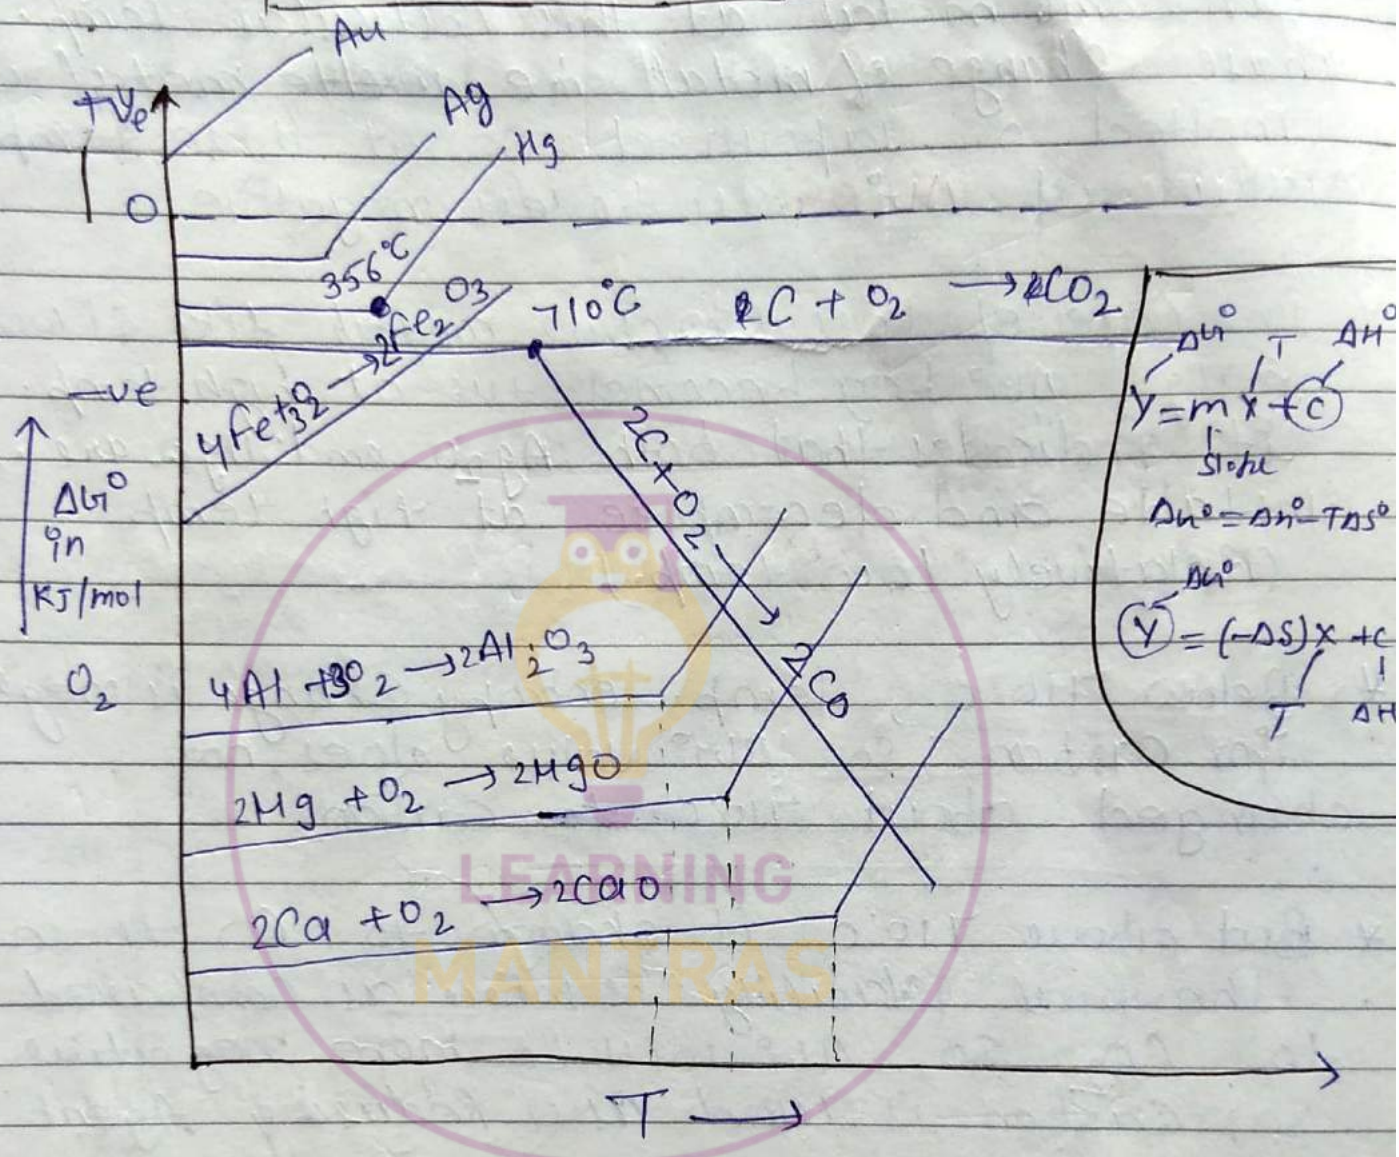 Au
+Ve
Ag
Hg
O
356°C
710°C
C + O2 → CO2
-ve
4Fe+3O2 → 2Fe2O3
ΔG° in KJ/mol O2
2C+O2 → 2CO
4Al + 3O2 → 2Al2O3
2Mg + O2 → 2MgO
2Ca + O2 → 2CaO
T →
ΔG° T ΔH°
Y = mx + C
Slope
ΔG° = ΔH° - TΔS°
ΔG°
Y = (-ΔS)x + C
T ΔH
LEARNING
MANTRAS